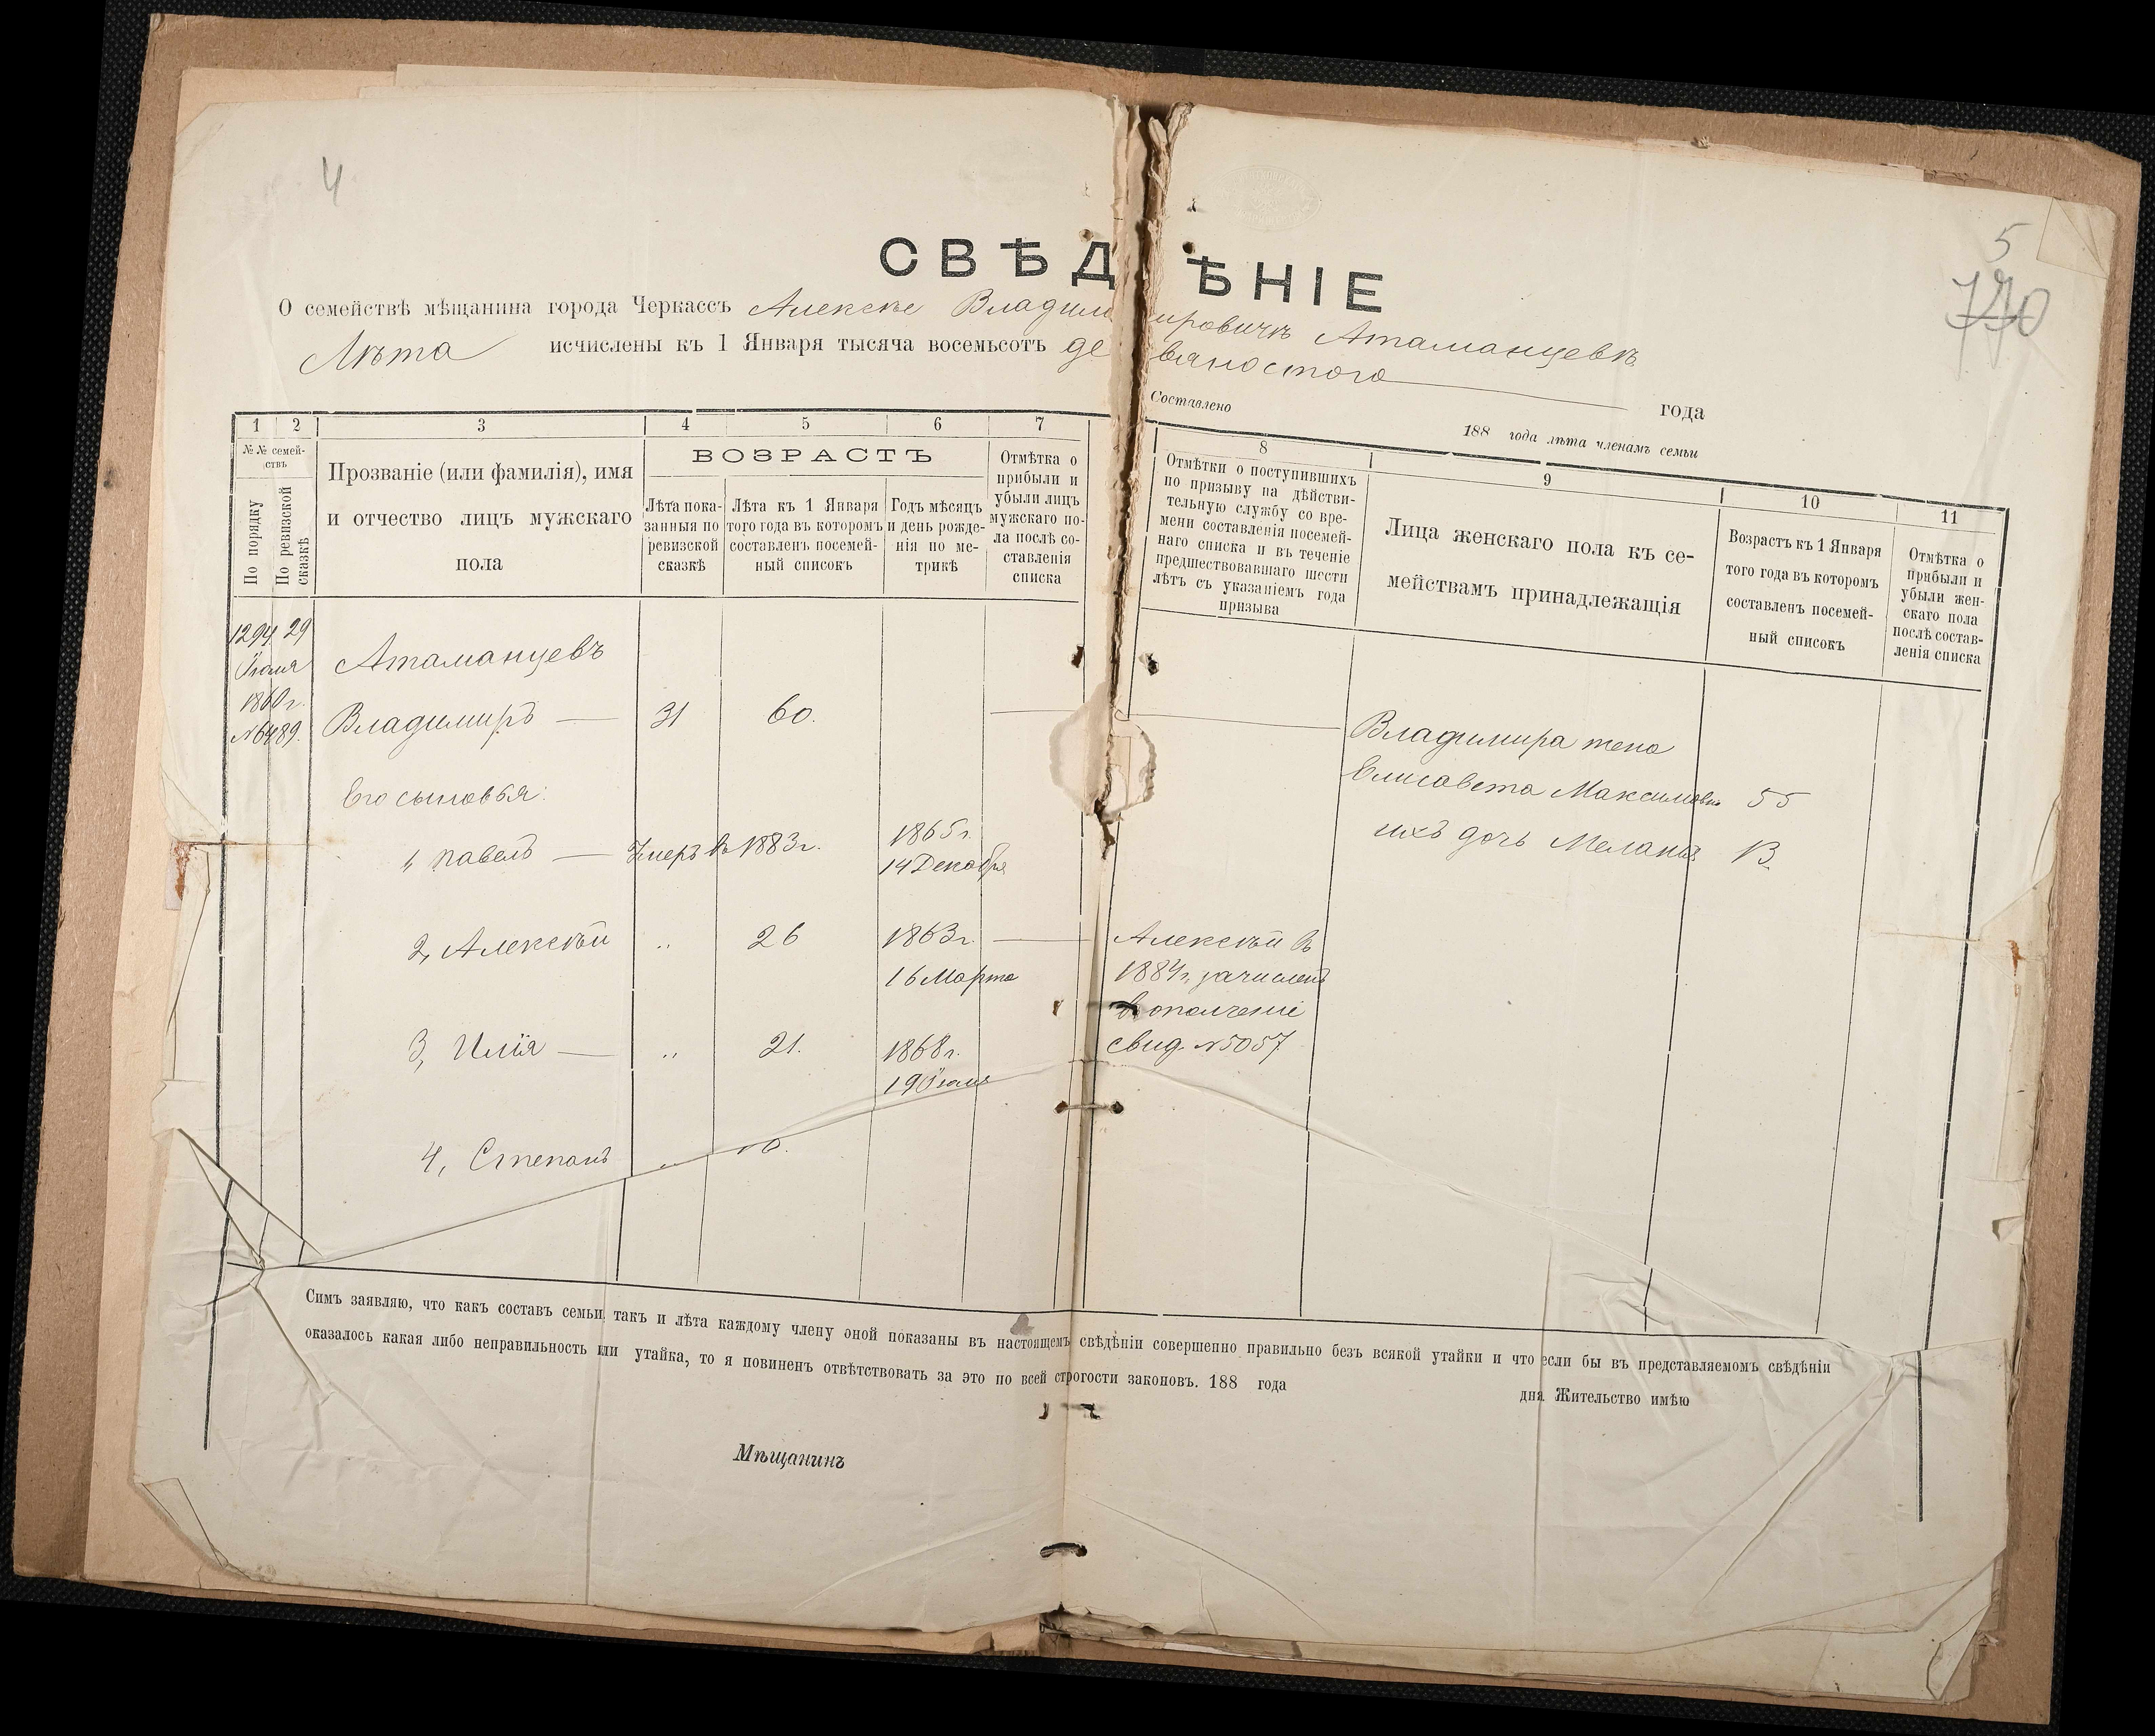 4
5
770
СВѢДѢНІЕ
О семействѣ мѣщанина города Черкассъ Алексѣе Владимировичѣ Атаманцевѣ
Лѣта исчислены къ 1 Января тысяча восемьсотъ девяностого года
Составлено 188 года лѣта членамъ семьи
1 2 3 4 5 6 7
№№ семей-
ствъ
По порядку
По ревизской
сказкѣ
Прозваніе (или фамилія), имя
и отчество лицъ мужскаго
пола
ВОЗРАСТЪ
Лѣта пока-
занныя по
ревизской
сказкѣ
Лѣта къ 1 Января
того года въ которомъ
составленъ посемей-
ный списокъ
Годъ мѣсяцъ
и день рожде-
нія по ме-
трикѣ
Отмѣтка о
прибыли и
убыли лицъ
мужскаго по-
ла послѣ со-
ставленія
списка
8 9 10 11
Отмѣтки о поступившихъ
по призыву на дѣйстви-
тельную службу со вре-
мени составленія посемей-
наго списка и въ теченіе
предшествовавшаго шести
лѣтъ съ указаніемъ года
призыва
Лица женскаго пола къ се-
мействамъ принадлежащія
Возрастъ къ 1 Января
того года въ которомъ
составленъ посемей-
ный списокъ
Отмѣтка о
прибыли и
убыли жен-
скаго пола
послѣ состав-
ленія списка
1294 29
Іюля
1860 г.
№6489.
Атаманцевъ
Владимиръ — 31 60.
Его сыновья:
1, Павелъ — Умеръ въ 1883 г. 1865 г.
14 Декабря
2, Алексѣй .. 26 1863 г.
16 Марта
3, Илія — .. 21. 1868 г.
19 Іюля
4, Степанъ ..
Алексѣй въ
1884 г. зачисленъ
в ополченіе
свид. №5057
Владимира жена
Елисавета Максимовна 55
ихъ дочь Меланія 13.
Симъ заявляю, что какъ составъ семьи такъ и лѣта каждому члену оной показаны въ настоящемъ свѣдѣніи совершенно правильно безъ всякой утайки и что если бы въ представляемомъ свѣдѣніи
оказалось какая либо неправильность или утайка, то я повиненъ отвѣтствовать за это по всей строгости законовъ. 188 года дня Жительство имѣю
Мѣщанинъ